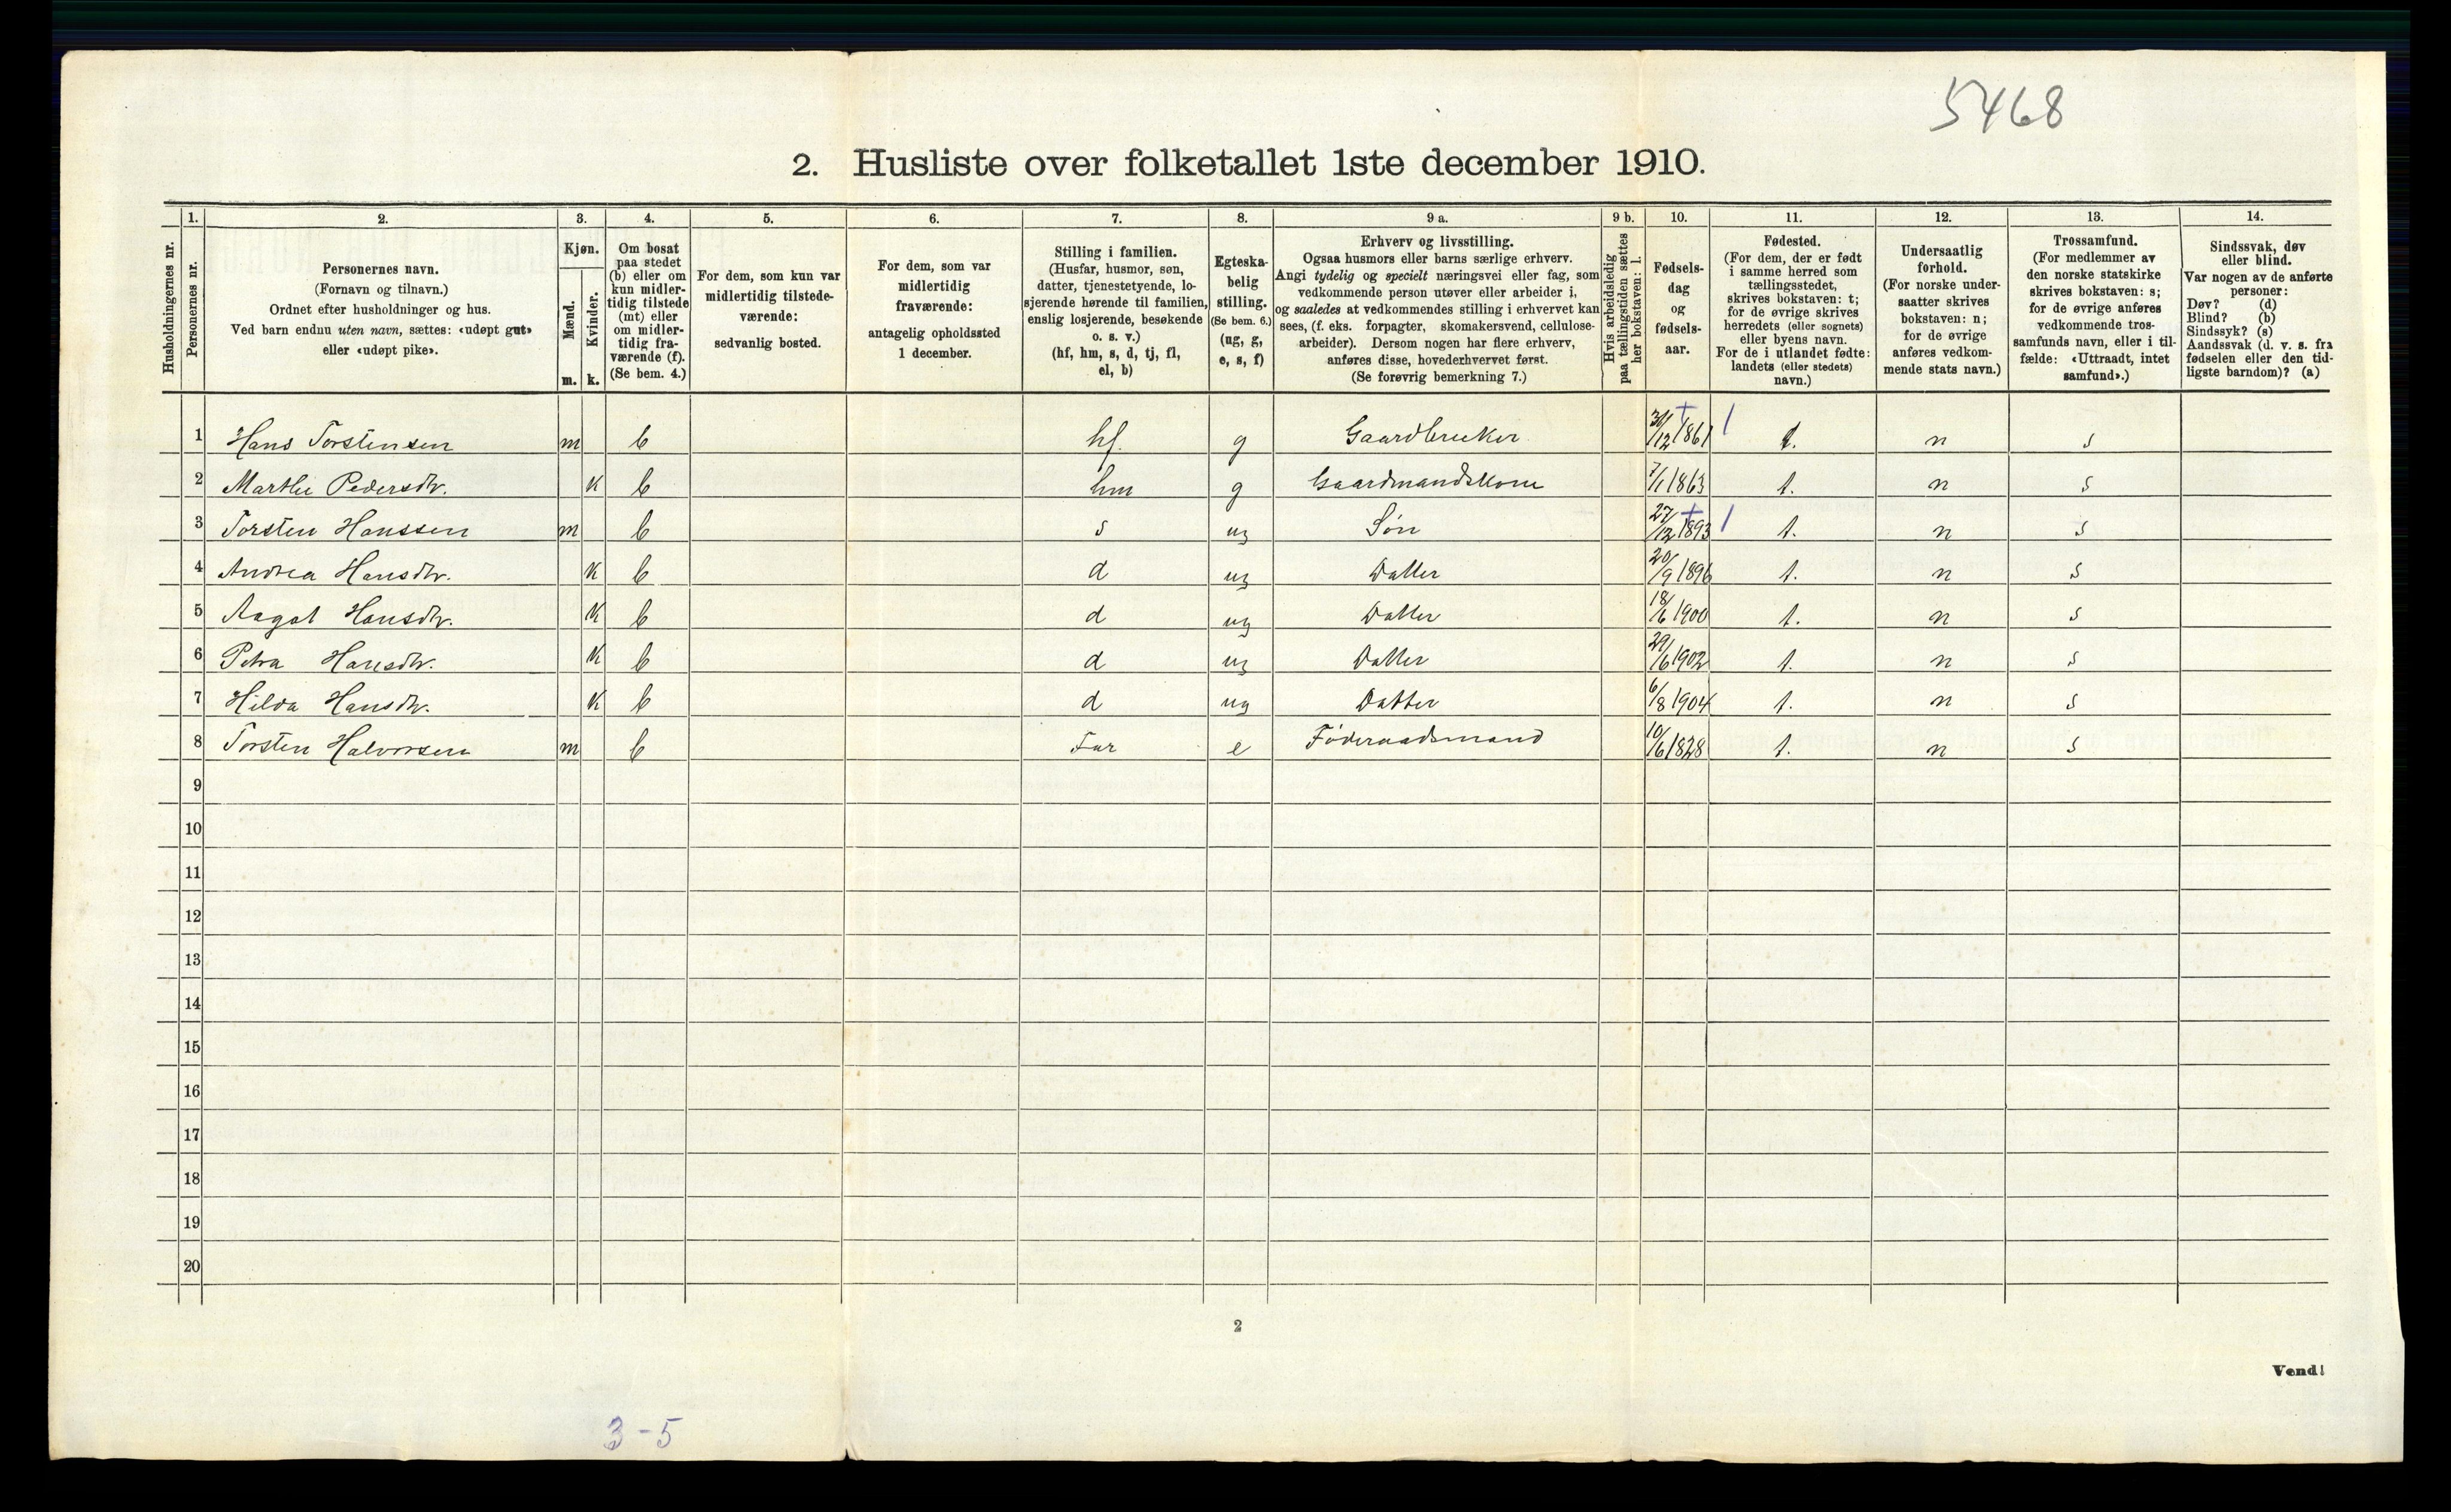 5468
2. Husliste over folketallet 1ste december 1910.
Husholdningernes nr.
1.
Personernes nr.
2.
Personernes navn.
(Fornavn og tilnavn.)
Ordnet efter husholdninger og hus.
Ved barn endnu uten navn, sættes: «udøpt gut»
eller «udøpt pike».
3.
Kjøn.
Mænd.
Kvinder.
m. k.
4.
Om bosat
paa stedet
(b) eller om
kun midler-
tidig tilstede
(mt) eller
om midler-
tidig fra-
værende (f).
(Se bem. 4.)
5.
For dem, som kun var
midlertidig tilstede-
værende:
sedvanlig bosted.
6.
For dem, som var
midlertidig
fraværende:
antagelig opholdssted
1 december.
7.
Stilling i familien.
(Husfar, husmor, søn,
datter, tjenestetyende, lo-
sjerende hørende til familien,
enslig losjerende, besøkende
o. s. v.)
(hf, hm, s, d, tj, fl,
el, b)
8.
Egteska-
belig
stilling.
(Se bem. 6.)
(ug, g,
e, s, f)
9 a.
Erhverv og livsstilling.
Ogsaa husmors eller barns særlige erhverv.
Angi tydelig og specielt næringsvei eller fag, som
vedkommende person utøver eller arbeider i,
og saaledes at vedkommendes stilling i erhvervet kan
sees, (f. eks. forpagter, skomakersvend, cellulose-
arbeider). Dersom nogen har flere erhverv,
anføres disse, hovederhvervet først.
(Se forøvrig bemerkning 7.)
9 b.
Hvis arbeidsledig
paa tællingstiden sættes
her bokstaven: l.
10.
Fødsels-
dag
og
fødsels-
aar.
11.
Fødested.
(For dem, der er født
i samme herred som
tællingsstedet,
skrives bokstaven: t;
for de øvrige skrives
herredets (eller sognets)
eller byens navn.
For de i utlandet fødte:
landets (eller stedets)
navn.)
12.
Undersaatlig
forhold.
(For norske under-
saatter skrives
bokstaven: n;
for de øvrige
anføres vedkom-
mende stats navn.)
13.
Trossamfund.
(For medlemmer av
den norske statskirke
skrives bokstaven: s;
for de øvrige anføres
vedkommende tros-
samfunds navn, eller i til-
fælde: «Uttraadt, intet
samfund».)
14.
Sindssvak, døv
eller blind.
Var nogen av de anførte
personer:
Døv? (d)
Blind? (b)
Sindssyk? (s)
Aandssvak (d. v. s. fra
fødselen eller den tid-
ligste barndom)? (a)
1 Hans Torstensen m b hf. g Gaardbruker 31/12 1861 t. n s
2 Marthe Pedersdtr. k b hm g Gaardmandskone 7/1 1863 t. n s
3 Torsten Hanssen m b s ug Søn 27/12 1893 t. n s
4 Andrea Hansdtr. k b d ug Datter 20/9 1896 t. n s
5 Aagot Hansdtr. k b d ug Datter 18/6 1900 t. n s
6 Petra Hansdtr. k b d ug Datter 29/6 1902 t. n s
7 Hilda Hansdtr. k b d ug Datter 6/8 1904 t. n s
8 Torsten Halvorsen m b Far e Føderaadsmand 10/6 1828 t. n s
9
10
11
12
13
14
15
16
17
18
19
20
2
Vend!
3-5